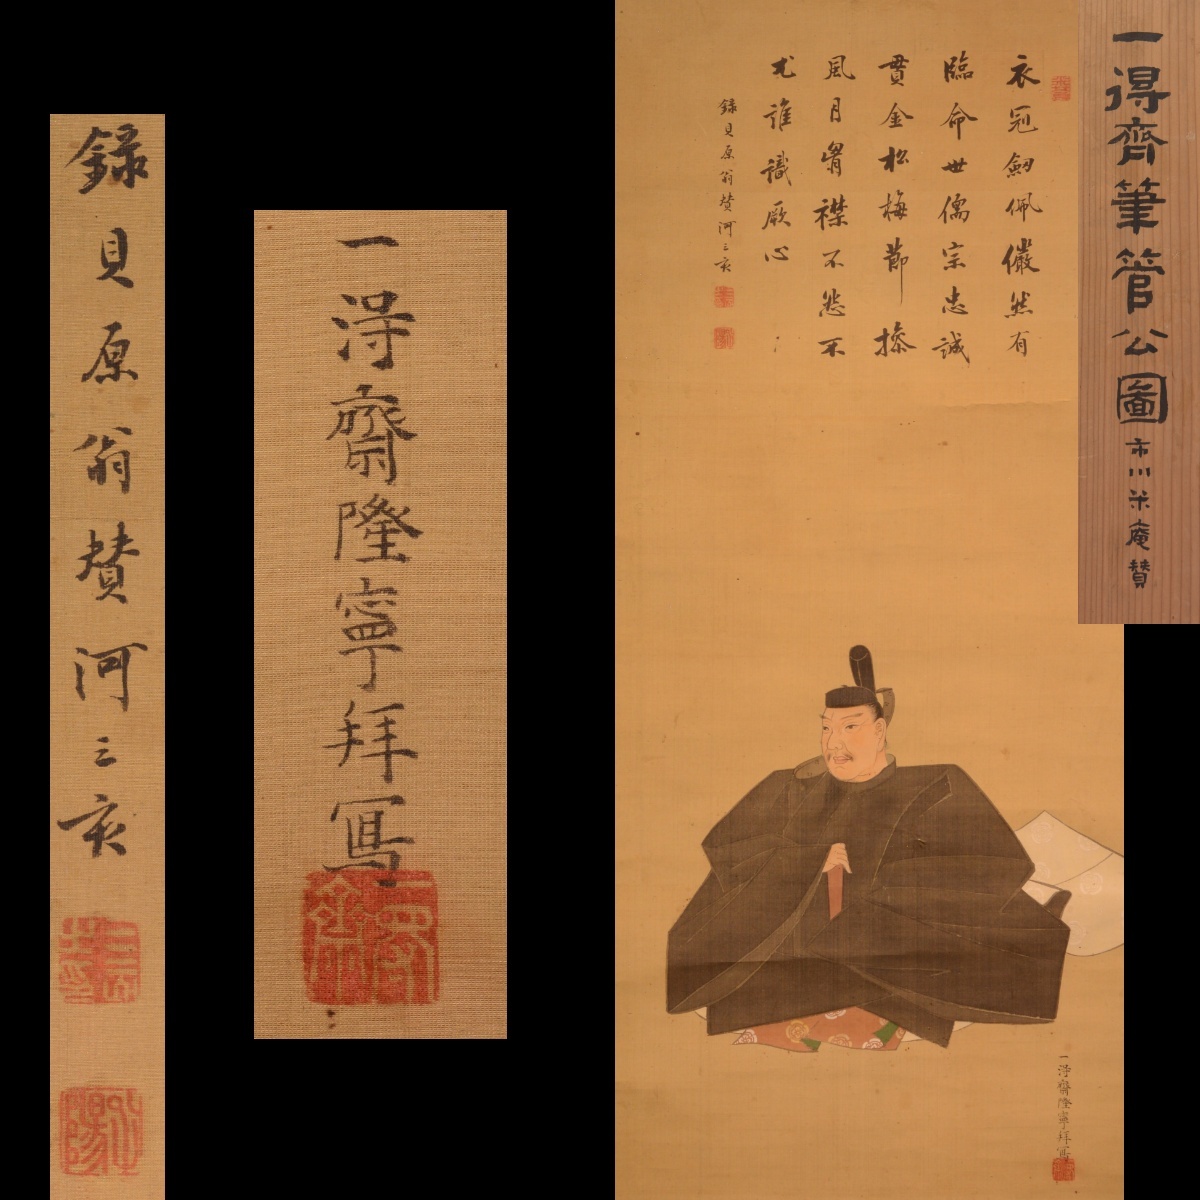 録貝原翁賛河三亥
一得齋隆寧拜寫
一得齊筆管公圖
市川米庵賛
衣冠劒佩儼然有
臨命世儒宗忠誠
貫金松梅節操
風月胷襟不怨不
尤誰識厥心
録貝原翁賛河三亥
一得齋隆寧拜寫